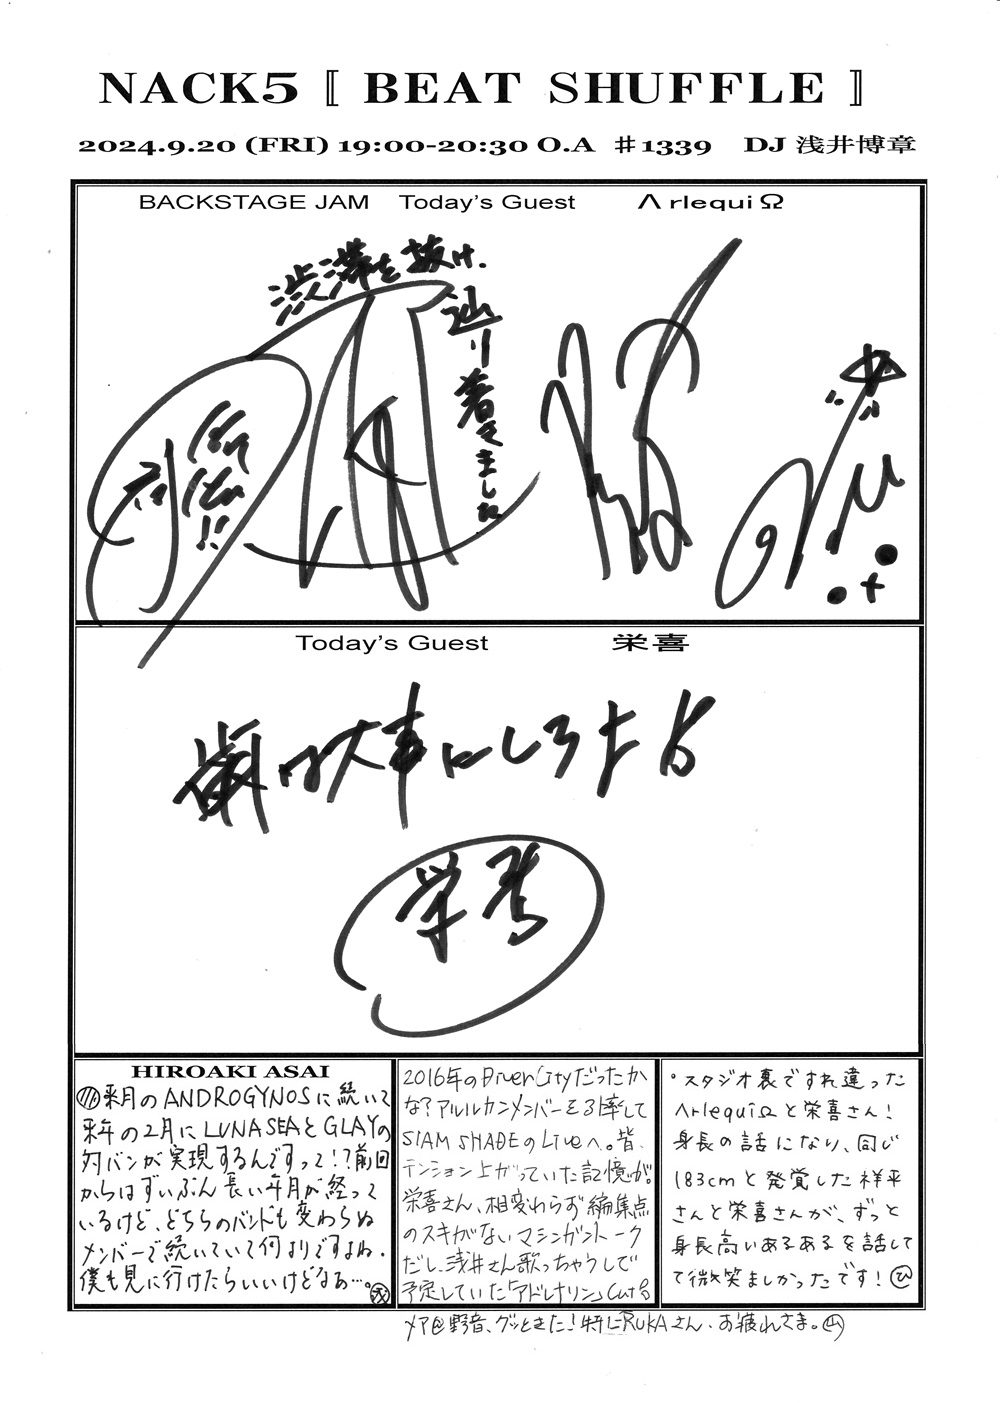 NACK5〚 BEAT SHUFFLE 〛
2024.9.20 (FRI) 19:00-20:30 O.A ♯1339 DJ 浅井博章
BACKSTAGE JAM Today's Guest Λ rlequi Ω
渋滞を抜け、
辿り着きました
祥平
Today's Guest 栄喜
歯は大事にしろよ
栄喜
HIROAKI ASAI
来月のANDROGYNOSに続いて
来年の2月にLUNA SEAとGLAYの
対バンが実現するんですって!?前回
からはずいぶん長い年月が経って
いるけど、どちらのバンドも変わらぬ
メンバーで続いていて何よりですよね。
僕も見に行けたらいいけどなぁ…。
2016年のDiverCityだったか
な?アルルカンメンバーを引率して
SIAM SHADEのLiveへ。皆、
テンション上がっていた記憶が。
栄喜さん、相変わらず編集点
のスキがないマシンガントーク
だし、浅井さん歌っちゃうしで
予定していた「アドレナリン」Cut
メア@野音、グッときた!特にRUKAさん、お疲れさま。
°スタジオ裏ですれ違った
ΛrlequiΩと栄喜さん!
身長の話になり、同じ
183cmと発覚した祥平
さんと栄喜さんが、ずっと
身長高いあるあるを話して
て微笑ましかったです!㋪